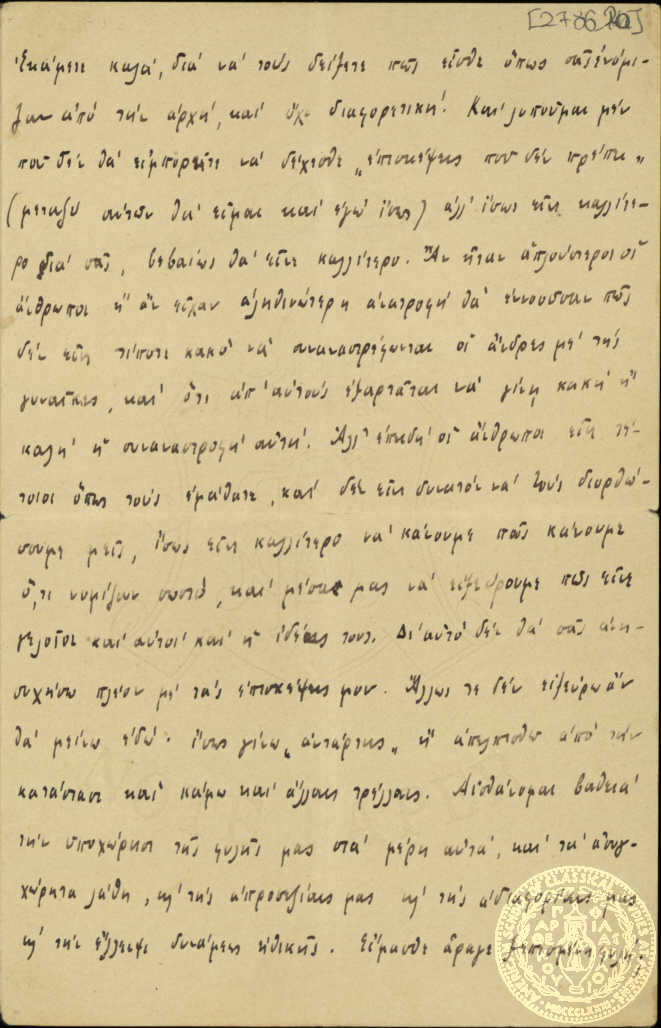 [2786 20]
Ἐκάμετε καλά, διά νά τούς δείξετε πῶς εἶσθε ὅπως σᾶς ἐνόμι-
ζαν ἀπό τήν ἀρχή, καί ὄχι διαφορετική. Καί λυποῦμαι μέν
πού δέν θά εἰμπορεῖτε νά δέχεσθε „ἐπισκέψεις πού δέν πρέπει„
(μεταξύ αὐτῶν θά εἶμαι καί ἐγώ ἴσως) ἀλλ' ἴσως εἶνε καλλίτε-
ρο διά σᾶς, βεβαίως θά εἶνε καλλίτερο. Ἄν ἦταν ἁπλούστεροι οἱ
ἄνθρωποι ἤ ἄν εἶχαν ἀληθινώτερη ἀνατροφή θά ἐννοοῦσαν πῶς
δέν εἶνε τίποτε κακό νά συναναστρέφωνται οἱ ἄνδρες μέ τής
γυναῖκες, καί ὅτι ἀπ' αὐτούς ἐξαρτᾶται νά γίνῃ κακή ἤ
καλή ἡ συναναστροφή αὐτή. Ἀλλ' ἐπειδή οἱ ἄνθρωποι εἶνε τέ-
τοιοι ὅπως τούς ἐμάθατε, καί δέν εἶνε δυνατόν νά τούς διορθώ-
σουμε μεῖς, ἴσως εἶνε καλλίτερο νά κάνουμε πῶς κάνουμε
ὅ,τι νομίζουν σωστό, καί μέσα μας νά εἰξεύρουμε πῶς εἶνε
γελοῖοι καί αὐτοί καί ἡ ἰδέες τους. Δι' αὐτό δέν θά σᾶς ἀνη-
συχήσω πλέον μέ τάς ἐπισκέψεις μου. Ἄλλως τε δέν εἰξεύρω ἄν
θά μείνω ἐδῶ· ἴσως γίνω „ἀντάρτης„ ἤ ἀπελπισθῶ ἀπό τήν
κατάστασι καί κάμω καί ἄλλαις τρέλλαις. Αἰσθάνομαι βαθειά
τήν ὑποχώρησι τῆς φυλῆς μας στά μέρη αὐτά, καί τά ἀσυγ-
χώρητα λάθη, κ' τής ἀπροσεξίαις μας κ' τής ἀδιαφορίαις μας
κ' τήν ἔλλειψι δυνάμεως ἠθικῆς. Εἴμασθε ἄραγε ξεπεσμένη φυλή;